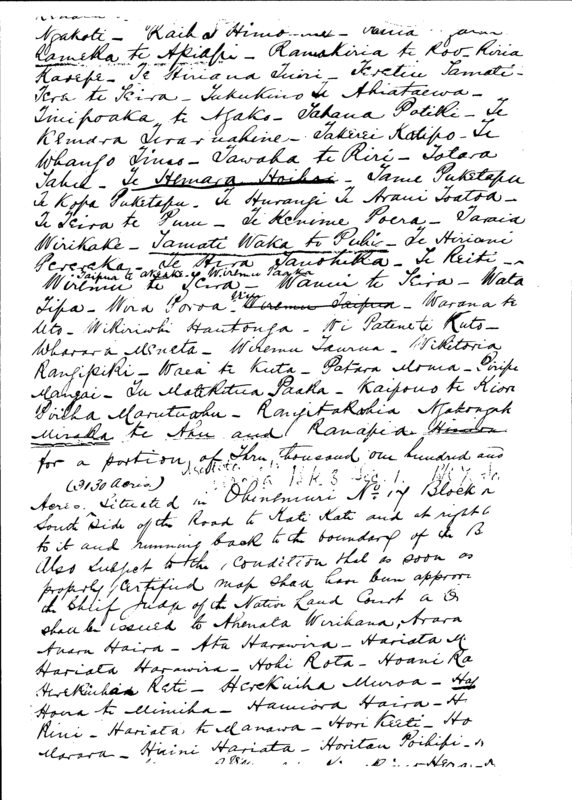 Ngakoti - Kaiha Himo
Rameka te Apiapi - Ramakiria te Rov - Riria
Karepe - Te Hiriana Tuiri - Teretiu Tamati -
Tera te Teira - Tukukino Te Ahiataewa -
Tinipoaka te Ngako - Tahana Potiki - Te
Kemara Turaruahine - Takerei Katipo - Te
Whango Tinas - Tawaha te Riri - Totara
Tahu - Te Hemara Hoihoi - Tame Puketapu
Te Kopa Puketapu - Te Hurangi Te Araui Toatoa -
Te Teira te Puru - Te Kenime Poera - Taraia
Wirikake - Tamati Waka te Puhi - Te Hiriani
Perereka - Te Hira Tanohitka - Te Keiti -
Taipua te Wiremu Paaka
Wiremu te Teira - Wanui te Teira - Wata
Tipa - Wira Poroa - Wiremu Taipua - Warana te
Uto - Wikiriwhi Hautonga - Wi Patenete Kuto -
Wharara Meneta - Wiremu Taurua - Wiketoria
Rangipiki - Waea te Kuta - Patara Mouma - Piripi
Mangai - Tu Matekitua Paaka - Kaipouo te Kiore
Piriha Marutuahu - Rangitakahia Ngakongak
Miraka te Ahu and Ranapia
for a portion of Three thousand one hundred and
(3130 Acres)
Acres. Situated in Ohinemuri No 17 Block
South Side of the Road to Kati Kati and at right
to it and running back to the boundary of the B
Also Subject to the condition that as soon as
properly Certified map shall have been approv
the Chief Judge of the Native Land Court a
shall be issued to Ahenata Wirihana, Arara
Auara Haira - Ata Harawira - Hariata M
Hariata Harawira - Hohi Rota - Hoani Ra
Herekuiha Rati - Herekuiha Muroa - Ha
Hora te Mimiha - Hamiora Haira - H
Rini - Hariata te Manawa - Hori Keeti - Ho
Marara - Huini Hariata - Horitau Poihipi -